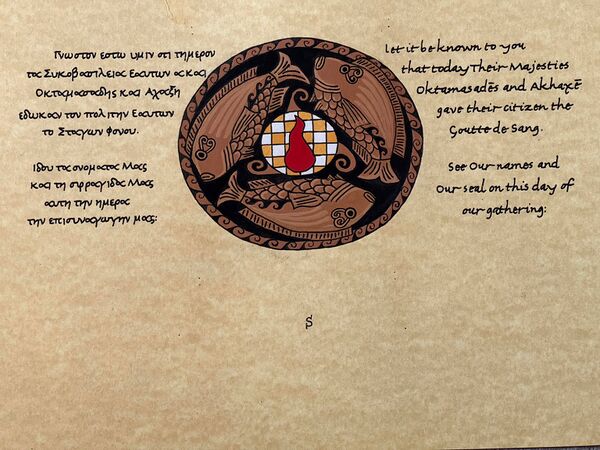 Γνωστον εστω υμιν οτι τημερον
τας Συκοβασιλειας Εαυτων ας και
Οκταμασαδης και Αχαξη
εδωκασν τον πολιτην Εαυτων
το Σταγων φονου.
Ιδου τας ονοματας Μας
και τη σφραγιδας Μας
αυτη την ημερας
την επισυναγωγην μας:
let it be known to you
that today Their Majesties
Oktamasadēs and Akhaxē
gave their citizen the
Goutte de Sang.
See Our names and
Our seal on this day of
our gathering: